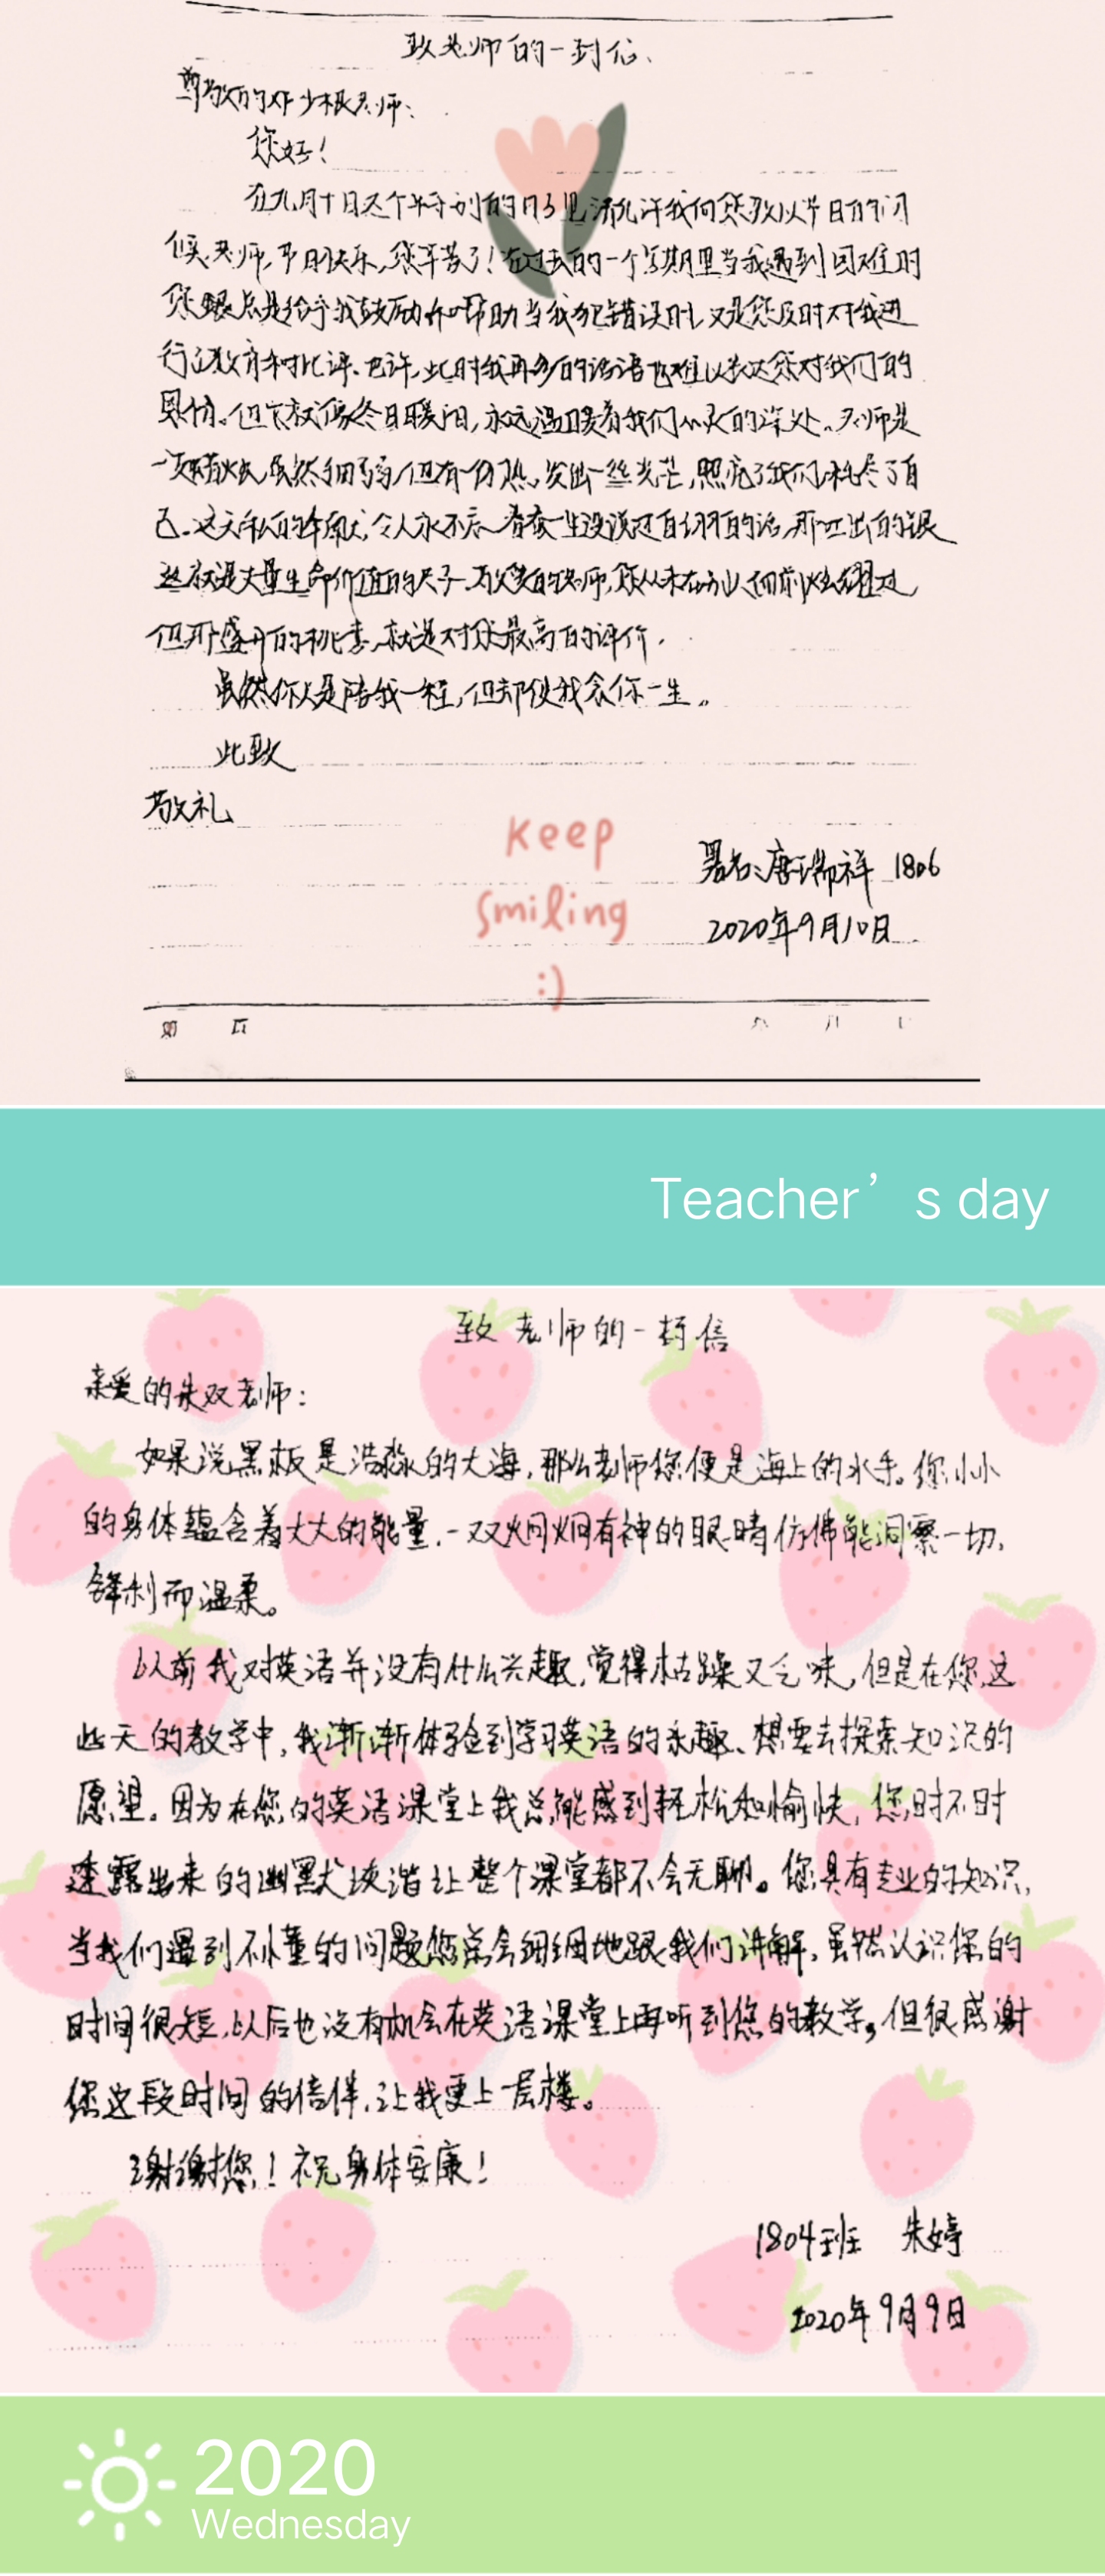 致老师的一封信
尊敬的 少根老师：
您好！
在九月十日这个特别的日子里请允许我向您致以节日的问
候.老师,节日快乐,您辛苦了！在过去的一个学期里当我遇到困难时
您总是给予我鼓励和帮助当我犯错误时,又是您及时对我进
行了教育和批评.也许,此时我再多的话语也难以表达您对我们的
恩情。但 像冬日暖阳,永远温暖着我们心灵的深处。老师是
一 虽然细弱,但有一份热,发出一丝光芒,照亮了我们,耗尽了自
己.这无私的奉献,令人永不忘.春蚕一生没说过自诩的话,那吐出的银
丝就是丈量生命价值的尺子.敬爱的老师,您从未在 面前炫耀过
但那盛开的桃李,就是对您最高的评价.
虽然你只是陪我一程,但却使我念你一生。
此致
敬礼
keep
署名:唐瑞祥 1806
smiling
2020年9月10日
:)
Teacher’s day
致老师的一封信
亲爱的朱双老师：
如果说黑板是浩淼的大海,那么老师您便是海上的水手。您小小
的身体蕴含着大大的能量.一双炯炯有神的眼睛仿佛能洞察一切,
锋利而温柔。
以前我对英语并没有什么兴趣,觉得枯躁又乏味,但是在您这
些天的教学中,我渐渐体验到学习英语的乐趣、想要去探索知识的
愿望。因为在您的英语课堂上我总能感到轻松和愉快,您时不时
透露出来的幽默诙谐让整个课堂都不会无聊。您具有专业的知识,
当我们遇到不懂的问题您总会细细地跟我们讲解,虽然认识您的
时间很短,以后也没有机会在英语课堂上再听到您的教学,但很感谢
您这段时间的倍伴,让我更上一层楼。
谢谢您！祝身体安康！
1804班 朱婷
2020年9月9日
2020
Wednesday